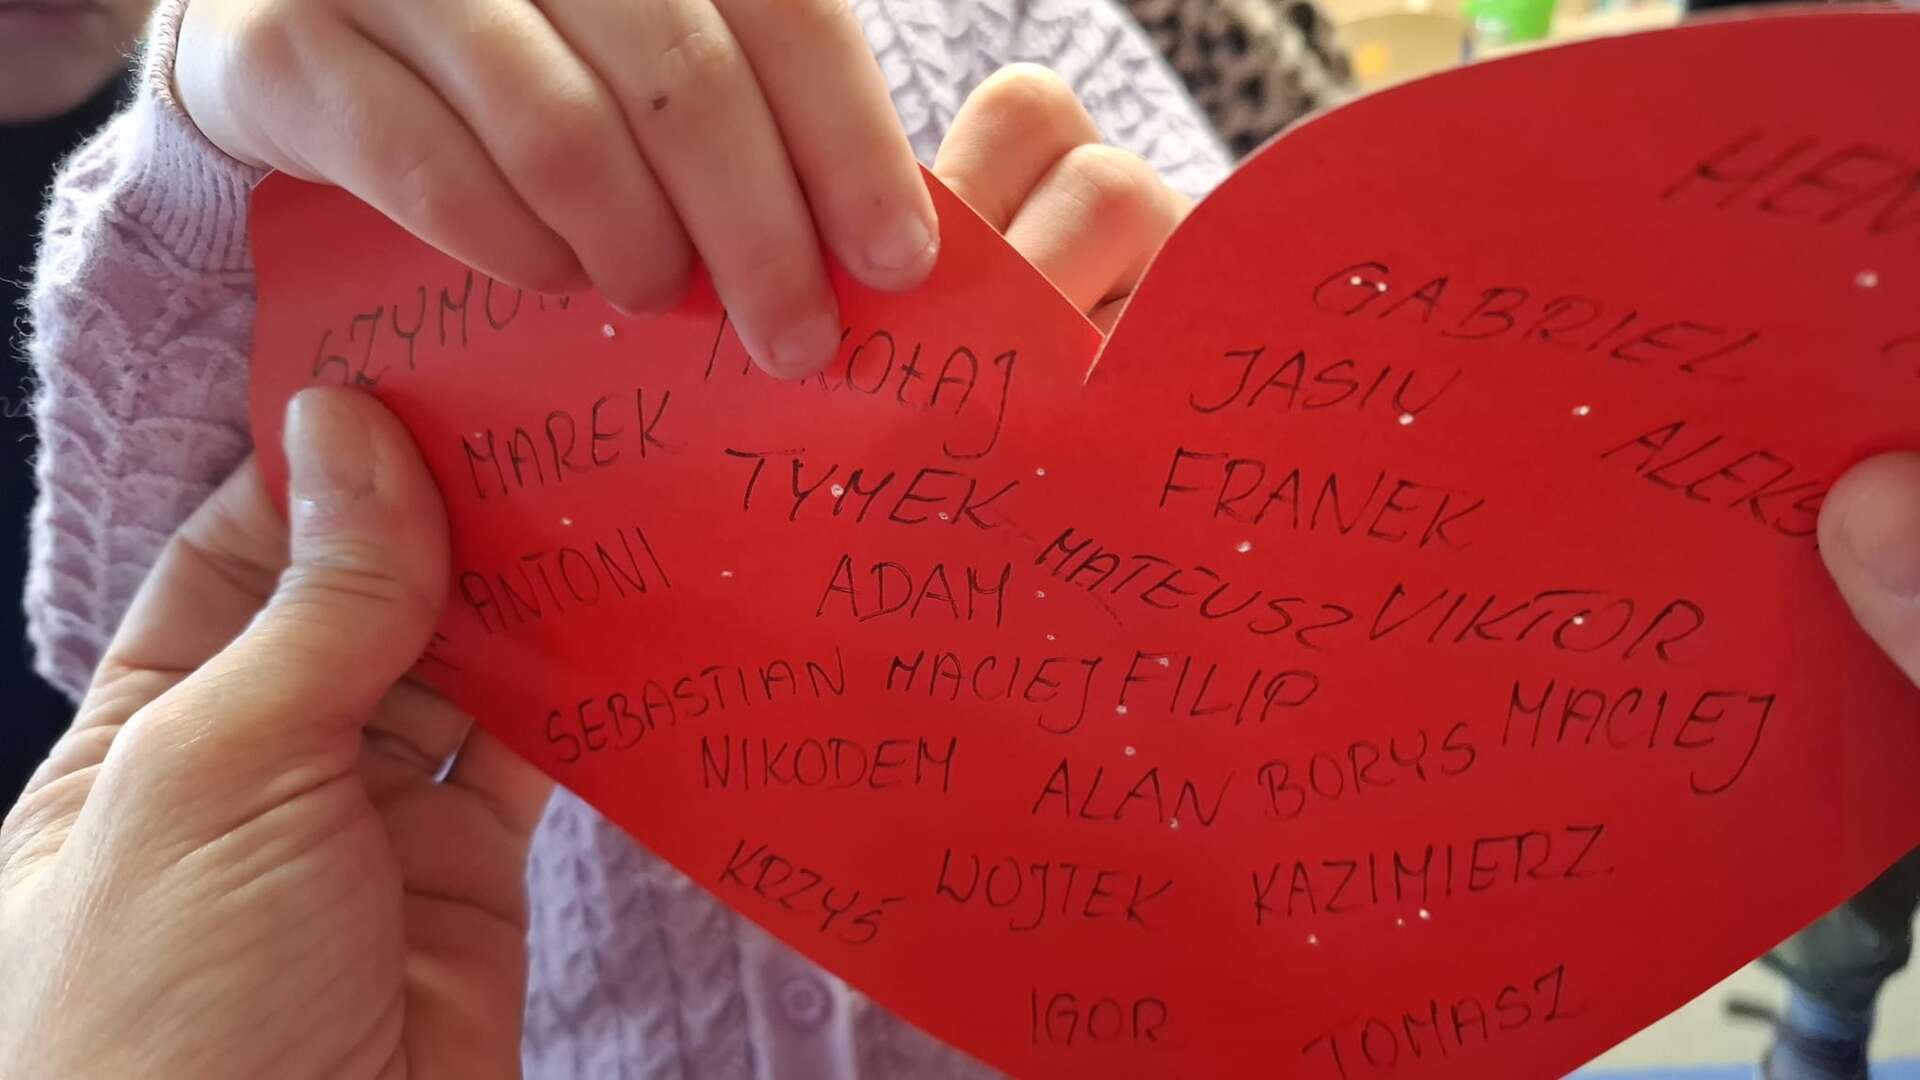 HEN
GABRIEL
SZYMON
MIKOŁAJ
JASIU
MAREK
TYMEK
FRANEK
ALEKS
ANTONI
ADAM
MATEUSZ
VIKTOR
SEBASTIAN
MACIEJ
FILIP
MACIEJ
NIKODEM
ALAN
BORYS
KRZYŚ
WOJTEK
KAZIMIERZ
IGOR
TOMASZ